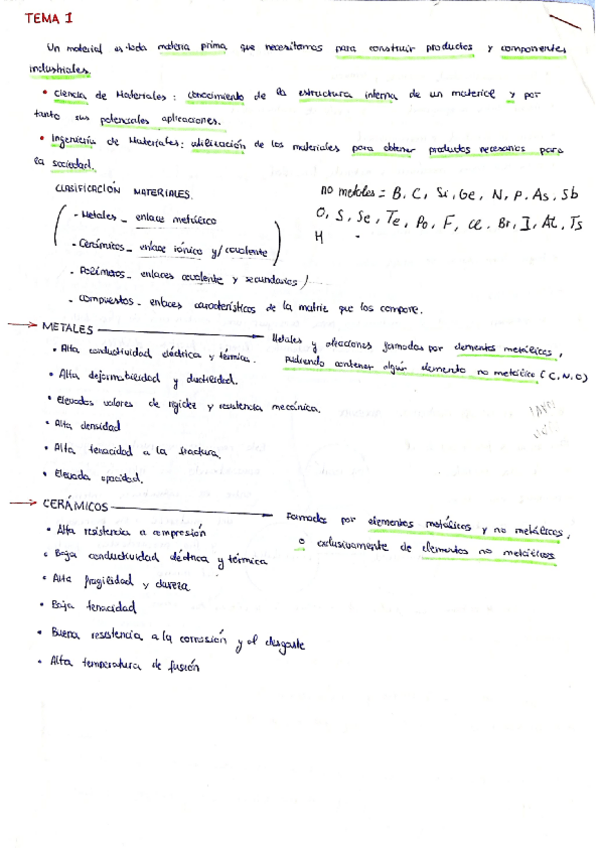 TEMA 1
Un material es toda materia prima que necesitamos para construir productos y componentes
industriales.
• Ciencia de Materiales: conocimiento de la estructura interna de un material y por
tanto sus potenciales aplicaciones.
• Ingeniería de Materiales: utilización de los materiales para obtener productos necesarios para
la sociedad.
CLASIFICACIÓN MATERIALES.
- Metales _ enlace metálico
- Cerámicos _ enlace iónico y/covalente
- Polímeros _ enlaces covalente y secundarios
- Compuestos _ enlaces característicos de la matriz que los compone.
no metales = B, C, Si, Ge, N, P, As, Sb
O, S, Se, Te, Po, F, Cl, Br, I, At, Ts
H
→ METALES → Metales y aleaciones formadas por elementos metálicos,
pudiendo contener algún elemento no metálico (C, N, O)
• Alta conductividad eléctrica y térmica.
• Alta deformabilidad y ductilidad.
• Elevados valores de rigidez y resistencia mecánica.
• Alta densidad
• Alta tenacidad a la fractura.
• Elevada opacidad.
→ CERÁMICOS → Formados por elementos metálicos y no metálicos,
o exclusivamente de elementos no metálicos
• Alta resistencia a compresión
• Baja conductividad eléctrica y térmica
• Alta fragilidad y dureza
• Baja tenacidad
• Buena resistencia a la corrosión y al desgaste
• Alta temperatura de fusión